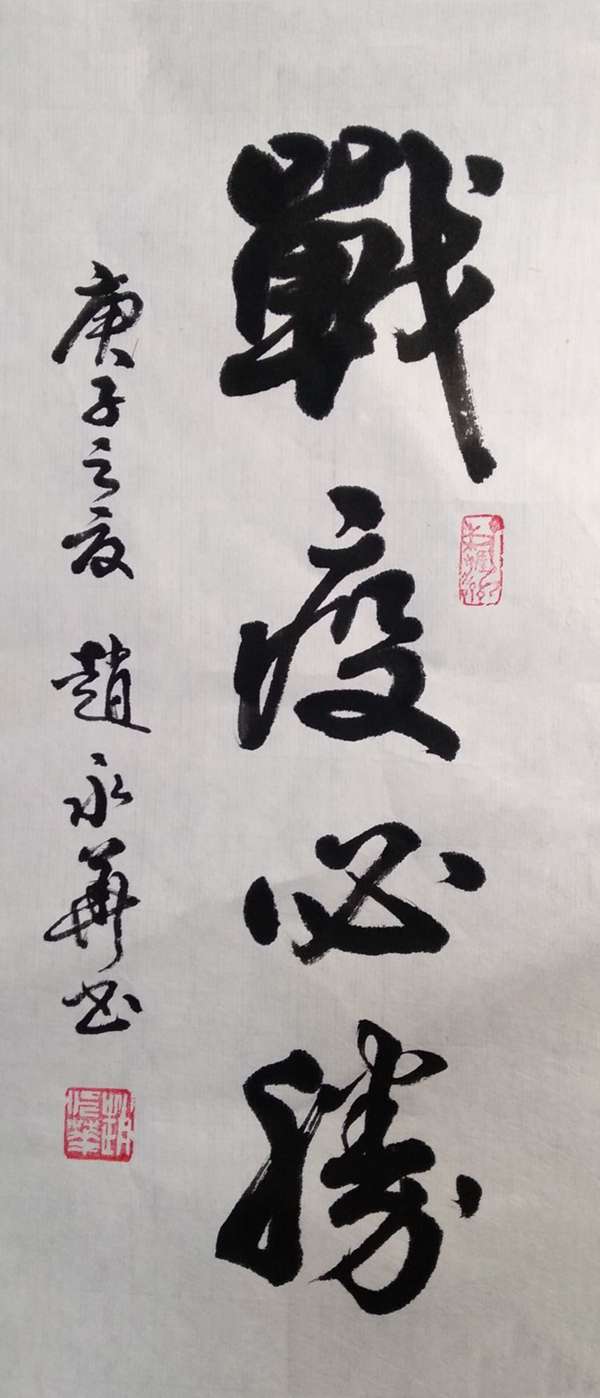 戰疫必勝
庚子之夏 趙永華书